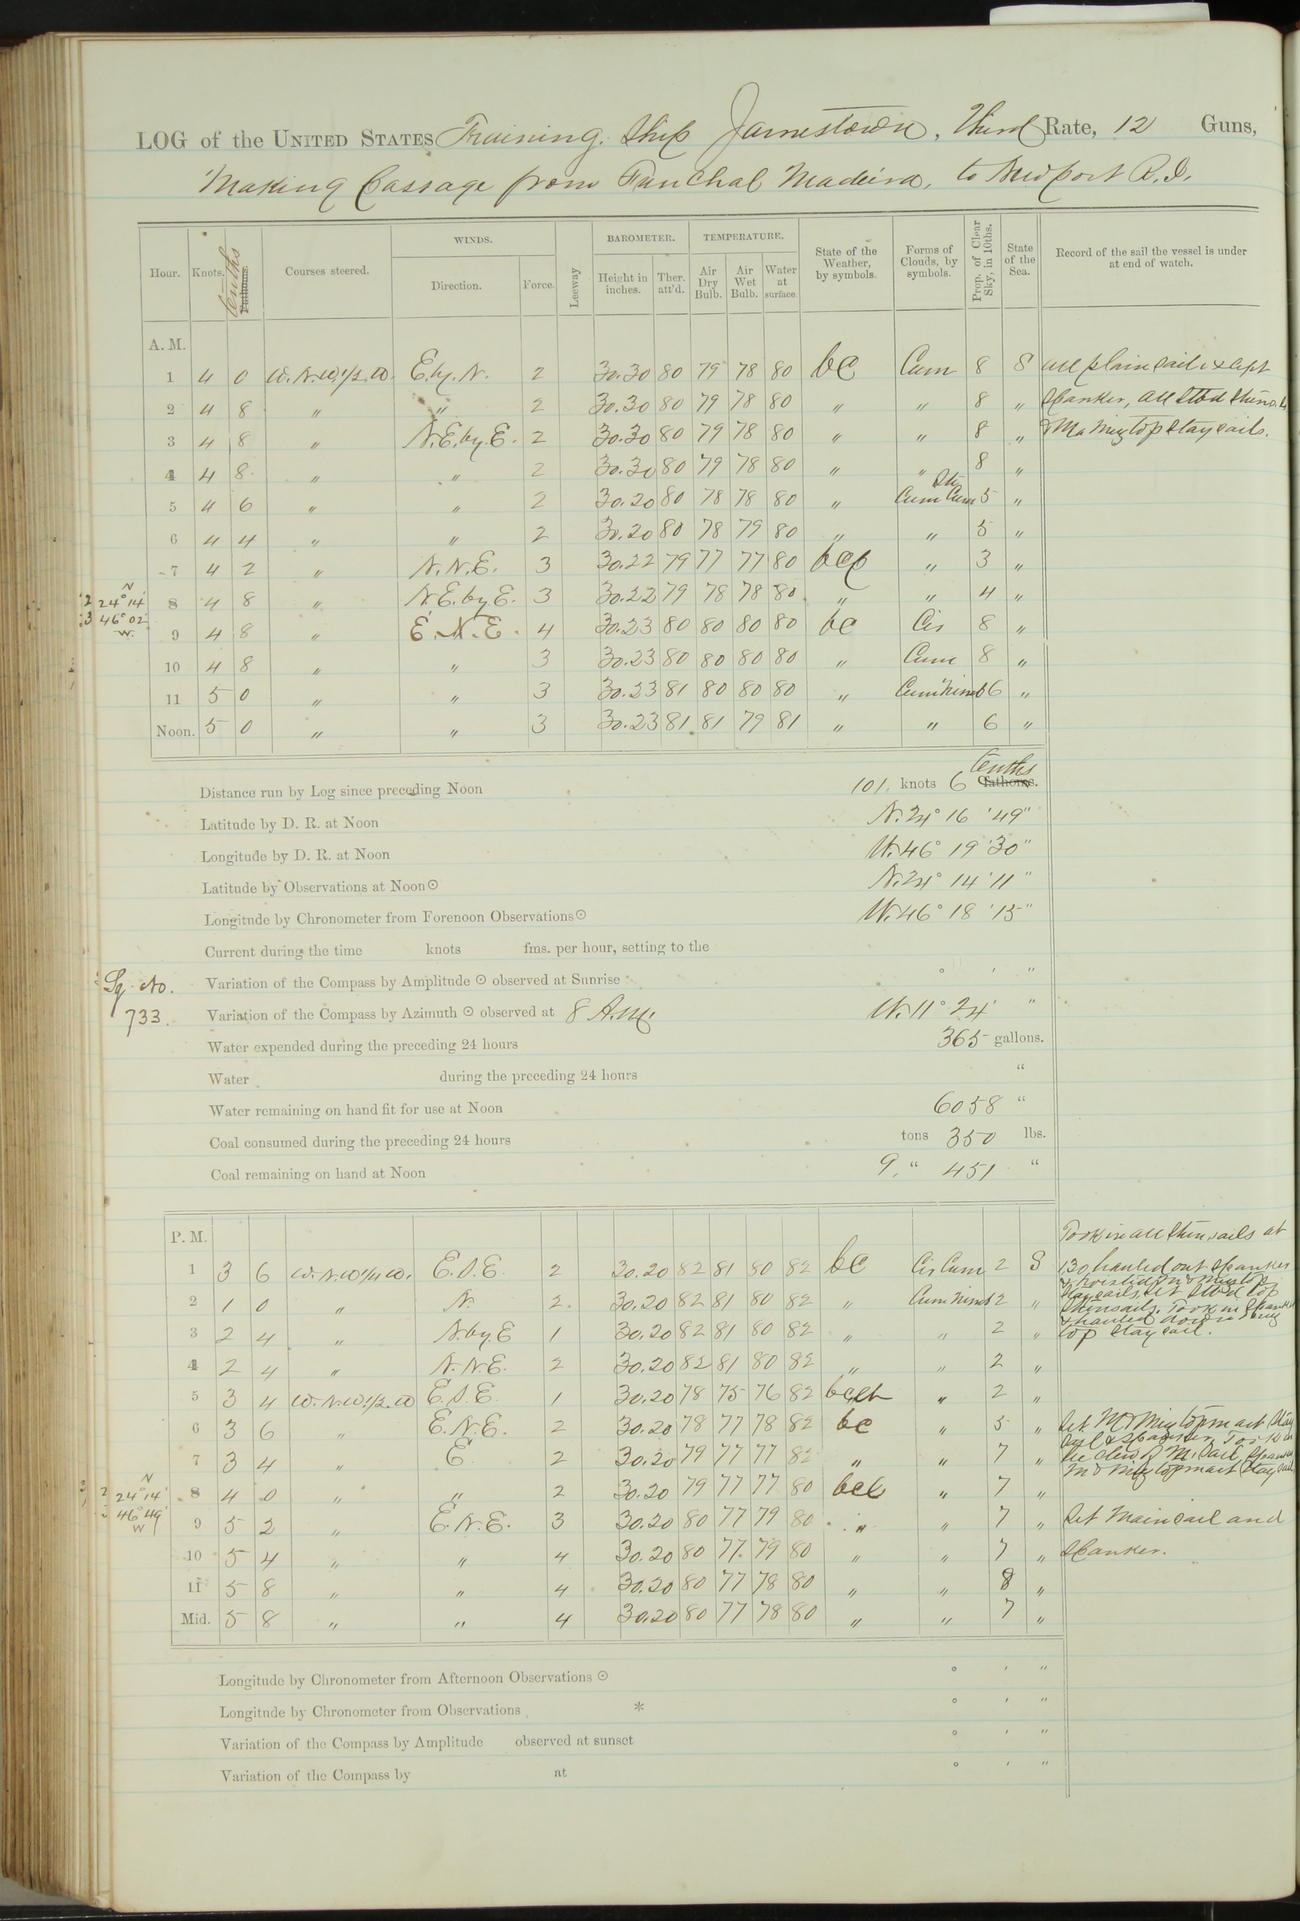 LOG of the UNITED STATES Training Ship Jamestown, Third Rate, 12 Guns,
Making Passage from Funchal Madeira, to Newport R.I.
WINDS. BAROMETER. TEMPERATURE.
Hour. Knots. tenths Fathoms. Courses steered. Direction. Force. Leeway Height in inches. Ther. att'd. Air Dry Bulb. Air Wet Bulb. Water at surface. State of the Weather, by symbols. Forms of Clouds, by symbols. Prop. of Clear Sky, in 10ths. State of the Sea. Record of the sail the vessel is under at end of watch.
A. M.
1 4 0 W.N.W.1/2.W. E.by.N. 2 30.30 80 79 78 80 bc Cum 8 S all plain sail except
2 4 8 " " 2 30.30 80 79 78 80 " " 8 " Spanker, all Stbd Stuns.ls
3 4 8 " N.E.by.E. 2 30.30 80 79 78 80 " " 8 " & Ma Mizg top Stay sails.
4 4 8 " " 2 30.30 80 79 78 80 " " 8 "
5 4 6 " " 2 30.20 80 78 78 80 " Cum Str Cum 5 "
6 4 4 " " 2 30.20 80 78 79 80 " " 5 "
7 4 2 " N.N.E. 3 30.22 79 77 77 80 " 3 "
8 4 8 " N.E.by E. 3 30.22 79 78 78 80 " " 4 "
N
24° 14'
46° 02'
W.
9 4 8 " E.N.E. 4 30.23 80 80 80 80 bc Cir 8 "
10 4 8 " " 3 30.23 80 80 80 80 " Cum 8 "
11 5 0 " " 3 30.23 81 80 80 80 " Cum Nimb 6 "
Noon. 5 0 " " 3 30.23 81 81 79 81 " " 6 "
Distance run by Log since preceding Noon 101. knots 6 tenths fathoms.
Latitude by D. R. at Noon N. 24° 16 ' 49"
Longitude by D. R. at Noon W. 46° 19 ' 30"
Latitude by Observations at Noon ⊙ N. 24° 14 ' 11"
Longitude by Chronometer from Forenoon Observations ⊙ W. 46° 18 ' 15"
Current during the time knots fms. per hour, setting to the
Variation of the Compass by Amplitude ⊙ observed at Sunrise ° ' "
Sq. No.
733.
Variation of the Compass by Azimuth ⊙ observed at 8 A.M. W. 11° 24' "
Water expended during the preceding 24 hours 365 gallons.
Water during the preceding 24 hours "
Water remaining on hand fit for use at Noon 6058 "
Coal consumed during the preceding 24 hours tons 350 lbs.
Coal remaining on hand at Noon 9. " 451 "
P. M. Took in all Stun.sails at
1 3 6 W.N.W.1/4 W. E.S.E. 2 30.20 82 81 80 82 bc Cir Cum 2 S 1.30, hauled out Spanker
& hoisted M & Mizg top
2 1 0 " N. 2 30.20 82 81 80 82 " Cum Nimb 2 " Stay sails. Set Stbd top
Stunsails. Took in Spanker
3 2 4 " N.by E 1 30.20 82 81 80 82 " " 2 " & hauled down Mizg
top Stay sail.
4 2 4 " N.N.E. 2 30.20 82 81 80 82 " " 2 "
5 3 4 W.N.W.1/2.W E.S.E. 1 30.20 78 75 76 82 " 2 "
6 3 6 " E.N.E. 2 30.20 78 77 78 82 bc " 5 " Set M & Miz topmast Stay
Sail & Spanker. Took in
7 3 4 " E 2 30.20 79 77 77 82 " " 7 " lee clew of M. Sail, Spanker
M & Mizg topmast Stay sail
8 4 0 " " 2 30.20 79 77 77 80 " 7 "
N
24° 14'
46° 49'
W
9 5 2 " E.N.E. 3 30.20 80 77 79 80 " " 7 " Set Mainsail and
10 5 4 " " 4 30.20 80 77 79 80 " " 7 " Spanker.
11 5 8 " " 4 30.20 80 77 78 80 " " 8 "
Mid. 5 8 " " 4 30.20 80 77 78 80 " " 7 "
Longitude by Chronometer from Afternoon Observations ⊙ ° ' "
Longitude by Chronometer from Observations * ° ' "
Variation of the Compass by Amplitude observed at sunset ° ' "
Variation of the Compass by at ° ' "